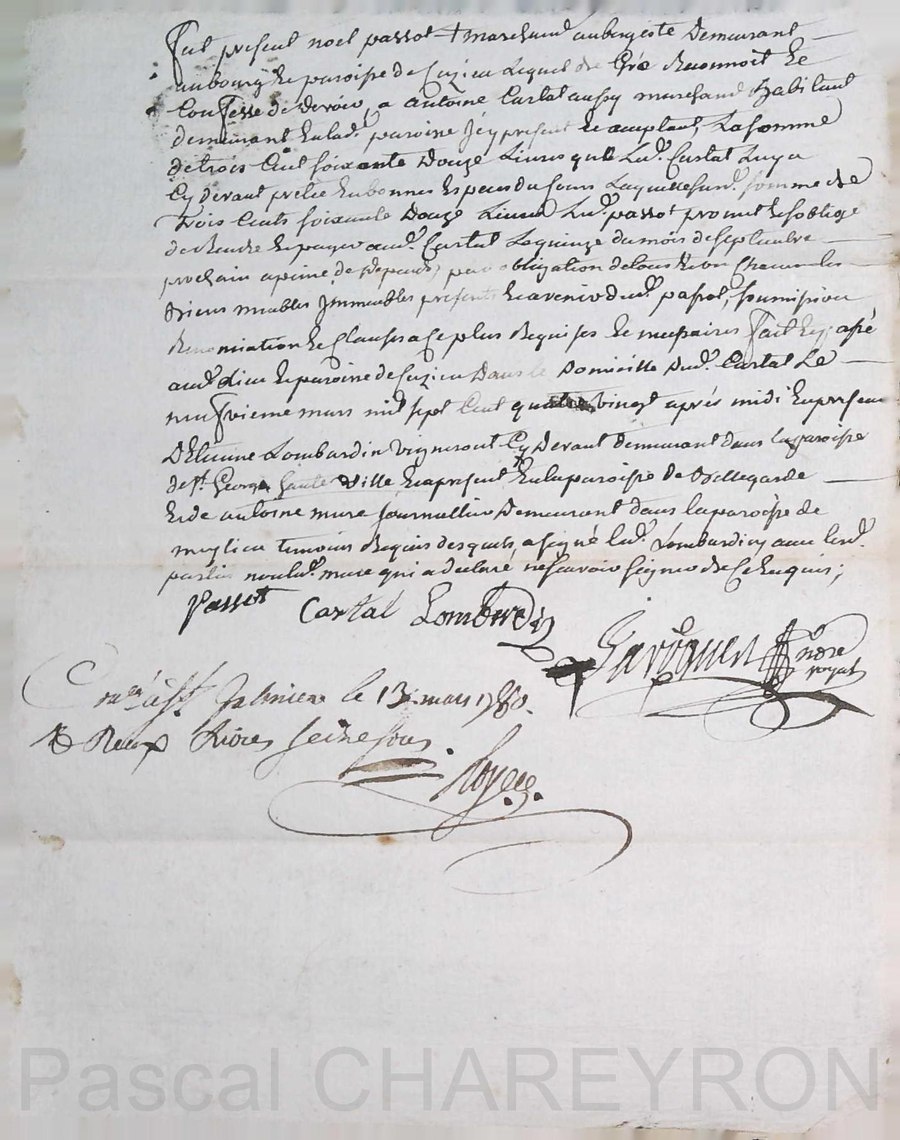 fut présent noel passot + marchand aubergiste demeurant
au bourg et paroisse de Cuzieu lequel de gré reconnoit et
confesse de devoir, a antoine Cartal aussy marchand habitant
demeurant en lad. paroisse icy présent et acceptant, la somme
de trois cent soixante douze livres que led. Cartal luy a
cy devant pretée en bonnes especes du cours laquelle susd. somme de
trois cents soixante douze livres led. passot promet et s'oblige
de rendre et payer aud. Cartal le quinze du mois de septembre
prochain a peine de depens, par obligation de tous et un chacun les
biens meubles immeubles presents et avenir dud. passot, soumission
renonciation et clauses a ce plus requises et necessaires fait et passé
aud. lieu et paroisse de Cuzieu dans le domicille dud. Cartal le
neufvieme mars mil sept cent quatre vingt après midi en presence
d'Etienne Lombardin vigneront cy devant demeurant dans la paroisse
de st. George haute ville et apresent en la paroisse de Bellegarde
et de antoine mure journallier demeurant dans la paroisse de
meylieu temoins requis desquels a signé led. Lombardin avec lesd.
parties non led. mure qui a declaré ne scavoir signer de ce enquis;
Passot Cartal Lombardin
andre
st. Galmier le 13 mars 1780.
R deux livres seize sous.